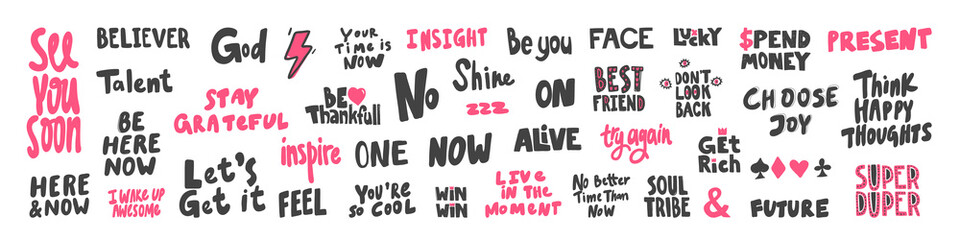 See
You
Soon
BELIEVER
God
Your
Time is
NOW
INSIGHT
Be you
FACE
LUCKY
$PEND
MONEY
PRESENT
Talent
STAY
GRATEFUL
BE
Thankfull
No
Shine
zzz
ON
BEST
FRIEND
DON'T
LOOK
BACK
CHOOSE
JOY
Think
HAPPY
THOUGHTS
BE
HERE
NOW
inspire
ONE
NOW
ALiVE
try again
GET
RicH
HERE
& NOW
I WAKE UP
AWESOME
Let's
Get it
FEEL
YOU'RE
so COOL
WiN
WiN
LIVE
IN THE
MOMENT
No Better
Time Than
Now
SOUL
TRIBE
&
FUTURE
SUPER
DUPER